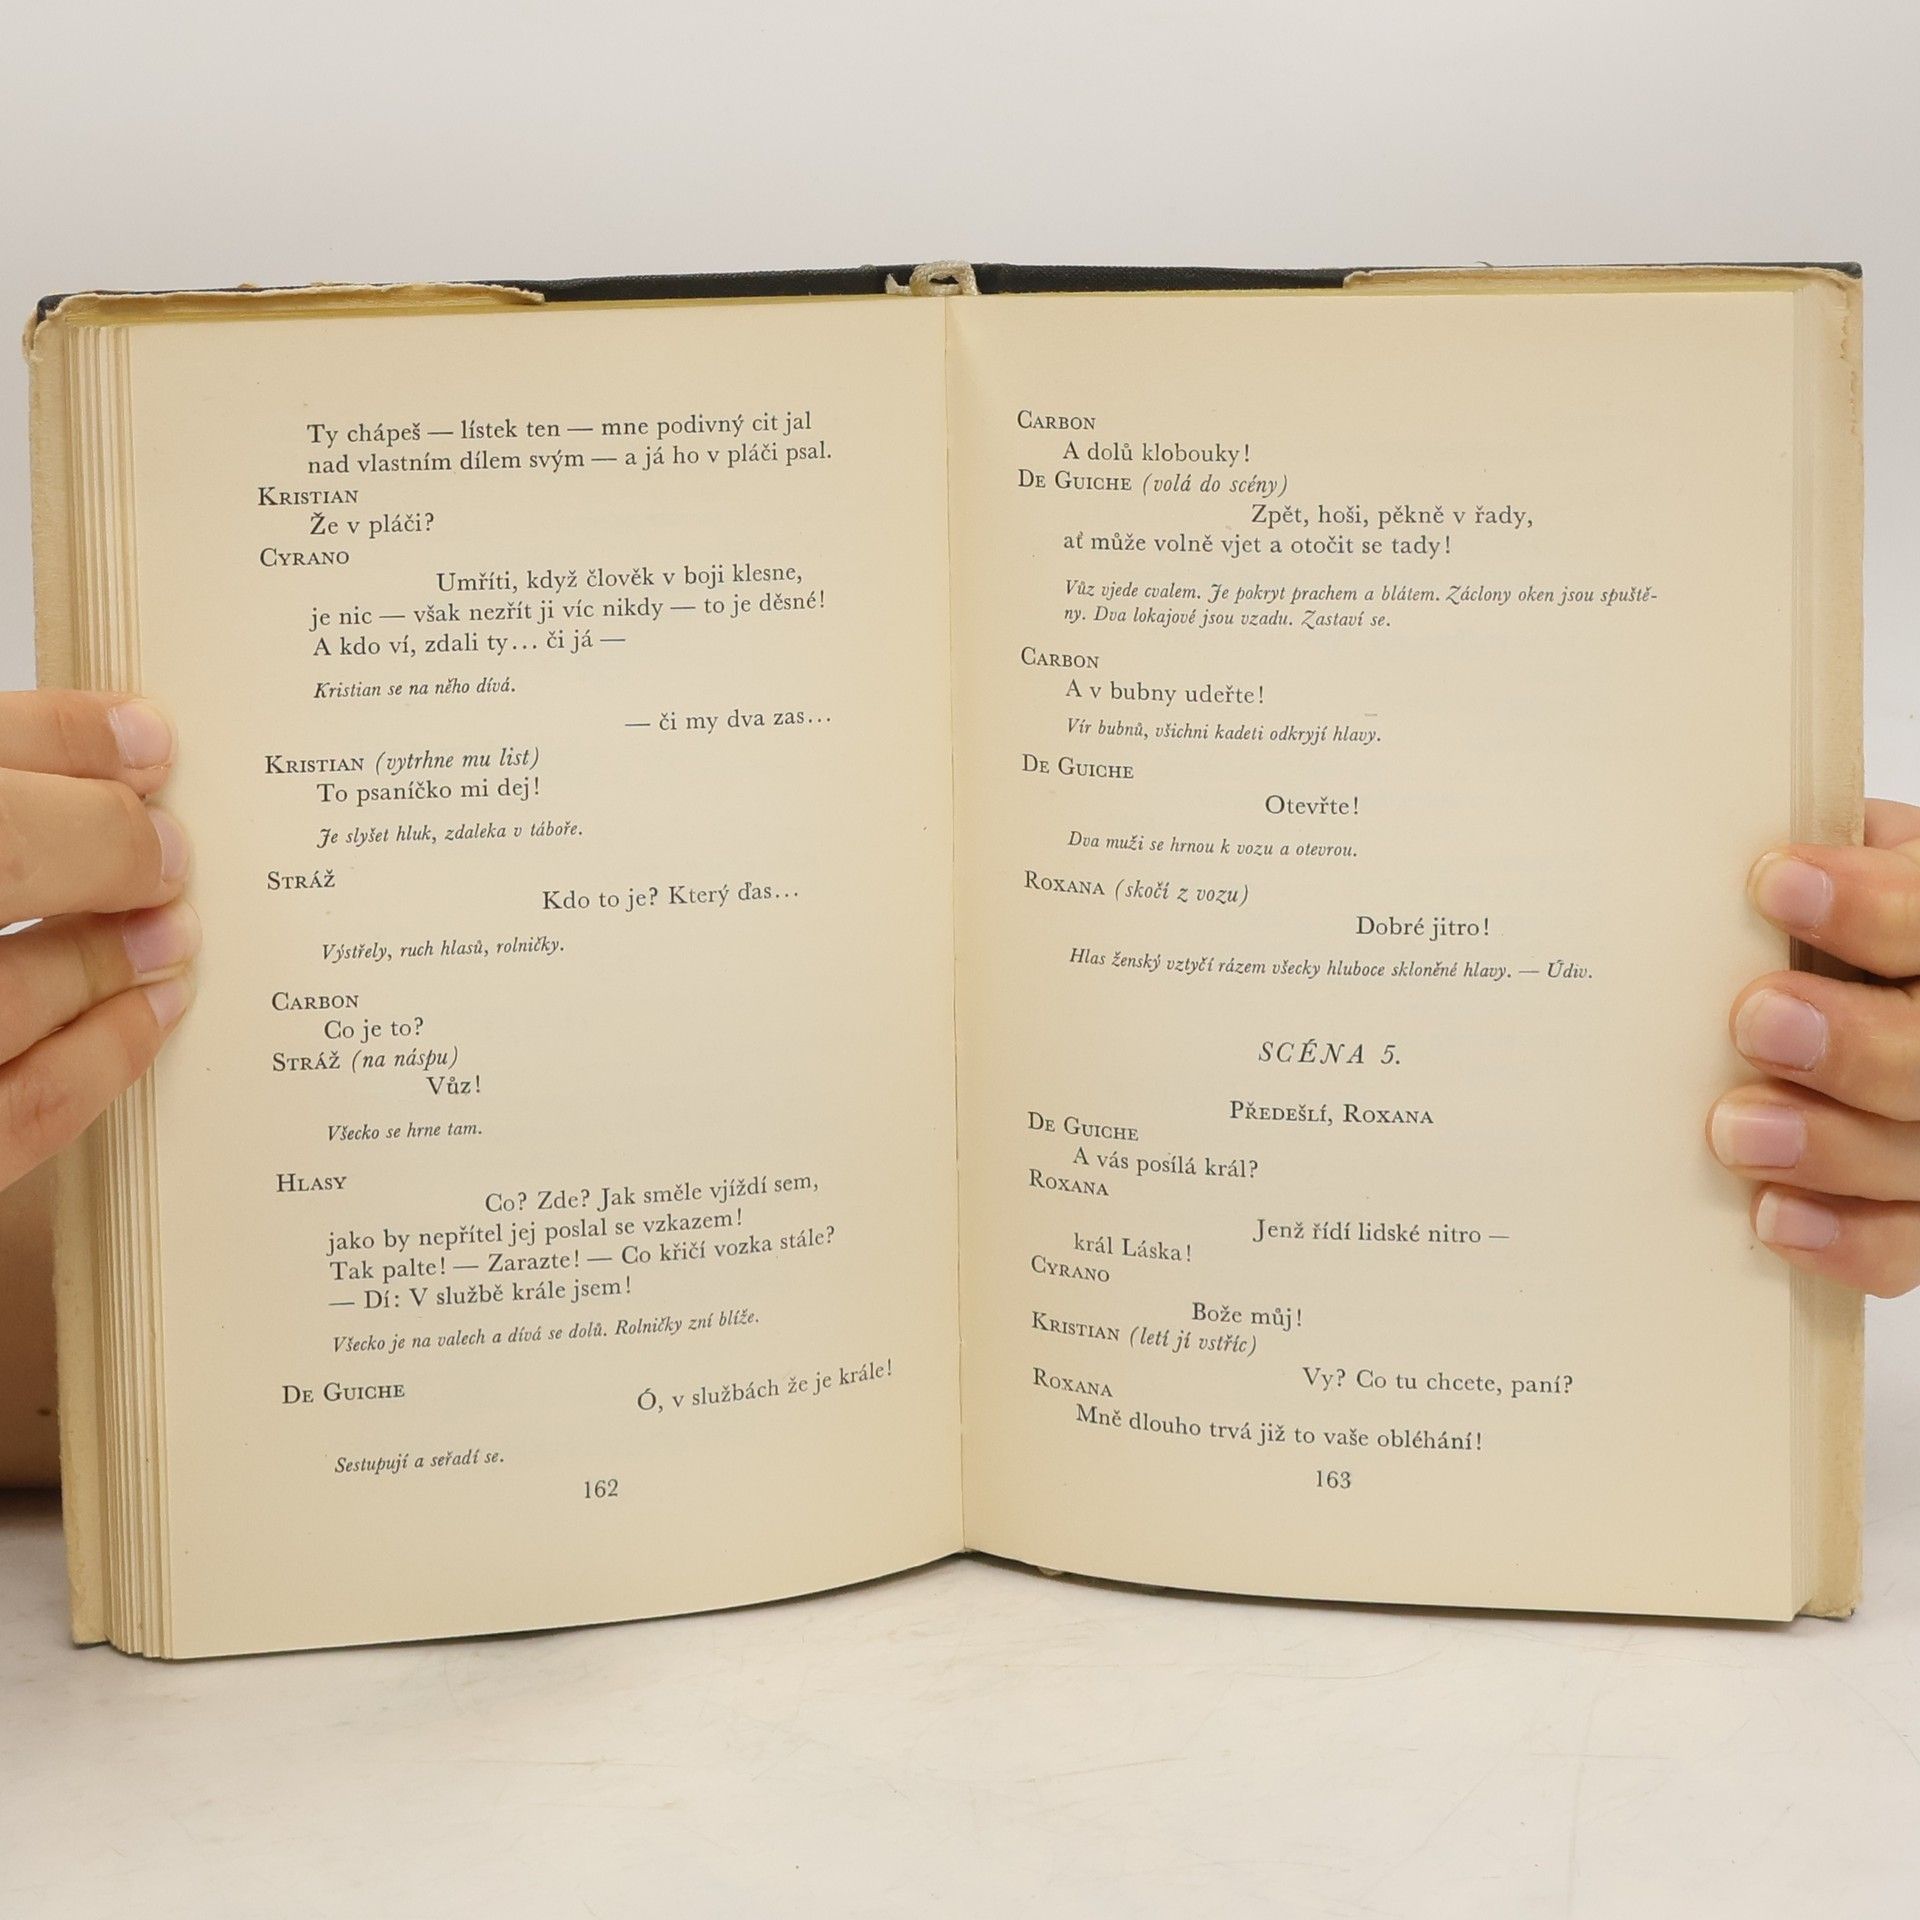 Ty chápeš — lístek ten — mne podivný cit jal
nad vlastním dílem svým — a já ho v pláči psal.
KRISTIAN
Že v pláči?
CYRANO
Umříti, když člověk v boji klesne,
je nic — však nezřít ji víc nikdy — to je děsné!
A kdo ví, zdali ty... či já —
Kristian se na něho dívá.
— či my dva zas...
KRISTIAN (vytrhne mu list)
To psaníčko mi dej!
Je slyšet hluk, zdaleka v táboře.
STRÁŽ
Kdo to je? Který ďas...
Výstřely, ruch hlasů, rolničky.
CARBON
Co je to?
STRÁŽ (na náspu)
Vůz!
Všecko se hrne tam.
HLASY
Co? Zde? Jak směle vjíždí sem,
jako by nepřítel jej poslal se vzkazem!
Tak palte! — Zarazte! — Co křičí vozka stále?
— Dí: V službě krále jsem!
Všecko je na valech a dívá se dolů. Rolničky zní blíže.
DE GUICHE
Ó, v službách že je krále!
Sestupují a seřadí se.
162
CARBON
A dolů klobouky!
DE GUICHE (volá do scény)
Zpět, hoši, pěkně v řady,
ať může volně vjet a otočit se tady!
Vůz vjede cvalem. Je pokryt prachem a blátem. Záclony oken jsou spuště-
ny. Dva lokajové jsou vzadu. Zastaví se.
CARBON
A v bubny udeřte!
Vír bubnů, všichni kadeti odkryjí hlavy.
DE GUICHE
Otevřte!
Dva muži se hrnou k vozu a otevrou.
ROXANA (skočí z vozu)
Dobré jitro!
Hlas ženský vztyčí rázem všecky hluboce skloněné hlavy. — Údiv.
SCÉNA 5.
PŘEDEŠLÍ, ROXANA
DE GUICHE
A vás posílá král?
ROXANA
Jenž řídí lidské nitro —
král Láska!
CYRANO
Bože můj!
KRISTIAN (letí jí vstříc)
Vy? Co tu chcete, paní?
ROXANA
Mně dlouho trvá již to vaše obléhání!
163